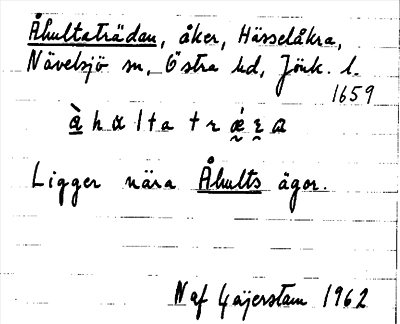 Åhultaträdan, åker, Hässelåkra,
Nävelsjö sn, Östra hd, Jönk. l.
1659
Ligger nära Åhults ägor.
N af Gäjerstam 1962